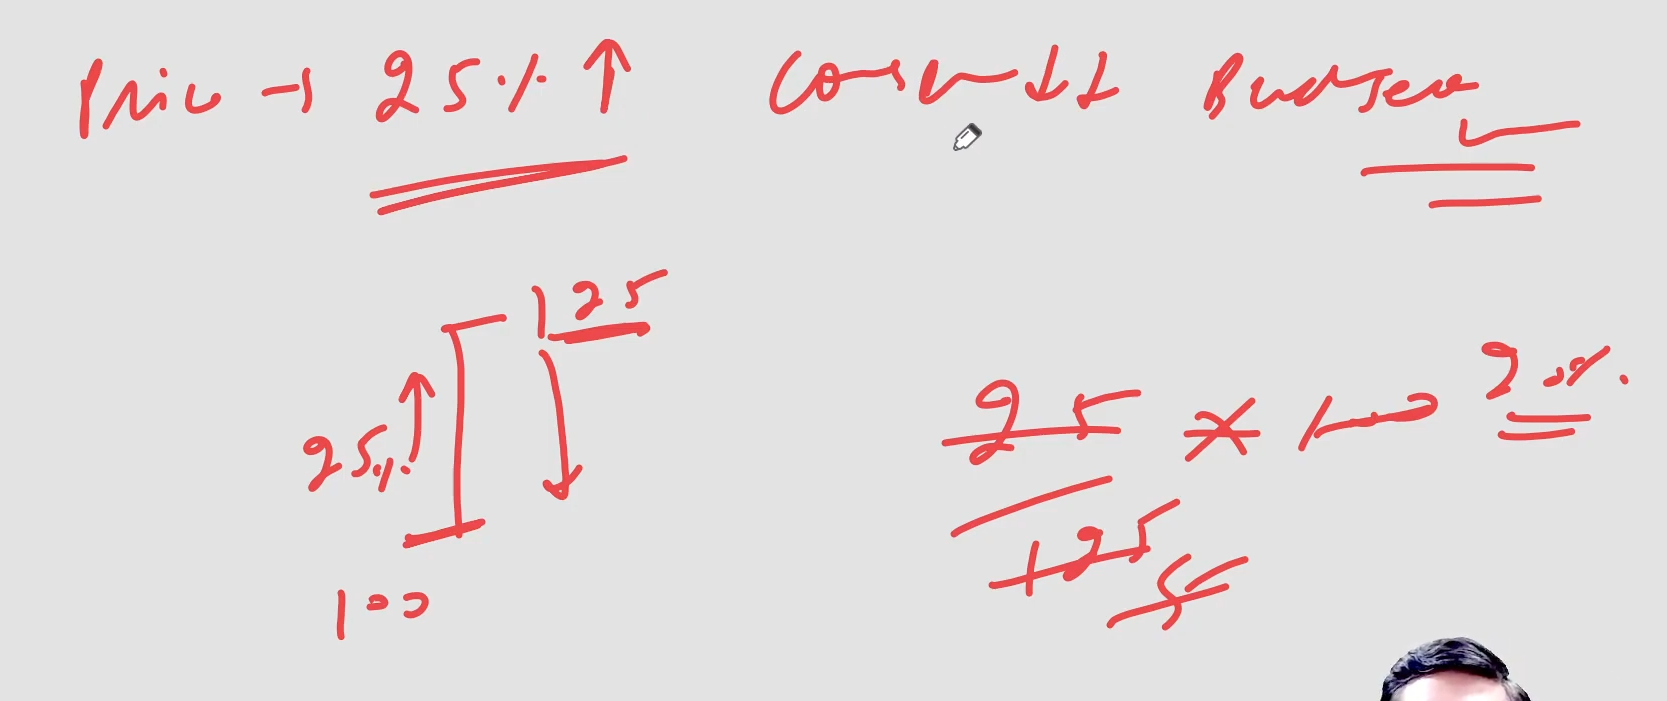 Price → 25% ↑ Consum ↓↓ Budget
125
25% ↑
25 × 100 20%
125 5
100